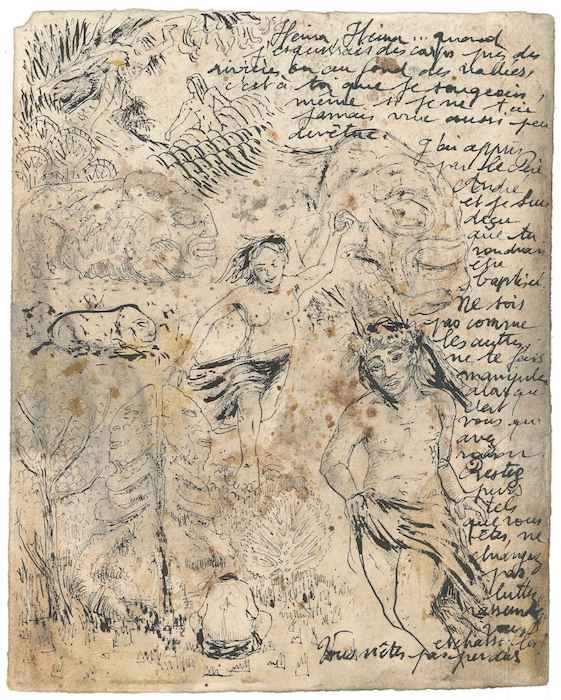 Heina, Heina... quand
j'esquissais des corps près des
rivières ou au fond des vallées,
c'est à toi que je songeais,
même si je ne t'ai
jamais vue aussi peu
dévêtue.
J'ai appris
par le Père
André
et je suis
déçu
que tu
voudrais
être
baptisée
Ne sois
pas comme
les autres,
ne te fais
manipuler
alors que
c'est
vous qui
avez
raison.
Restez
purs
tels
que vous
êtes, ne
changez
pas,
luttez
vous n'êtes pas perdus